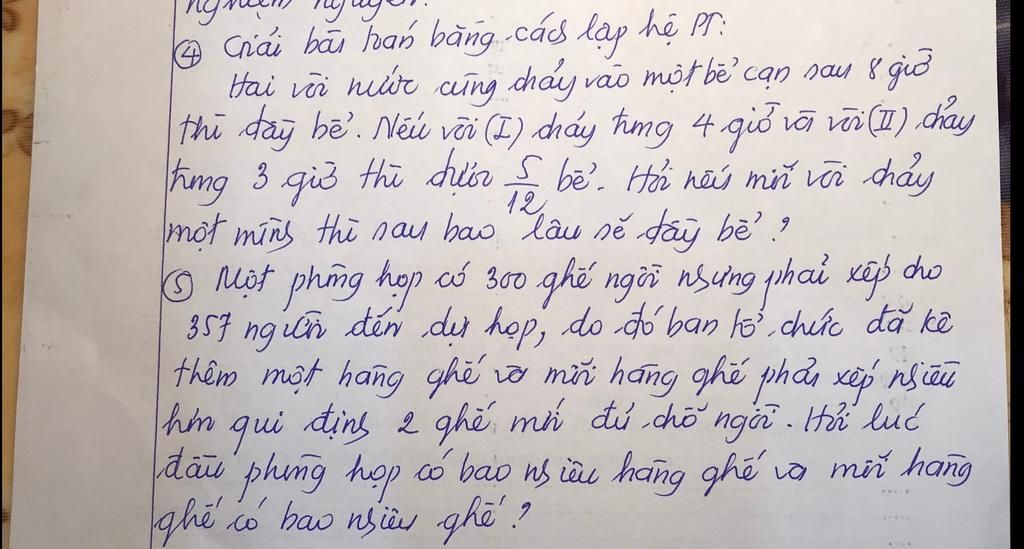 nghiệm nguyên.
④ Giải bài toán bằng cách lập hệ PT:
Hai vòi nước cùng chảy vào một bể cạn sau 8 giờ
thì đầy bể. Nếu vòi (I) chảy trong 4 giờ và vòi (II) chảy
trong 3 giờ thì được 5/12 bể. Hỏi nếu mỗi vòi chảy
một mình thì sau bao lâu sẽ đầy bể?
⑤ Một phòng họp có 300 ghế ngồi nhưng phải xếp cho
357 người đến dự họp, do đó ban tổ chức đã kê
thêm một hàng ghế và mỗi hàng ghế phải xếp nhiều
hơn qui định 2 ghế mới đủ chỗ ngồi. Hỏi lúc
đầu phòng họp có bao nhiêu hàng ghế và mỗi hàng
ghế có bao nhiêu ghế?